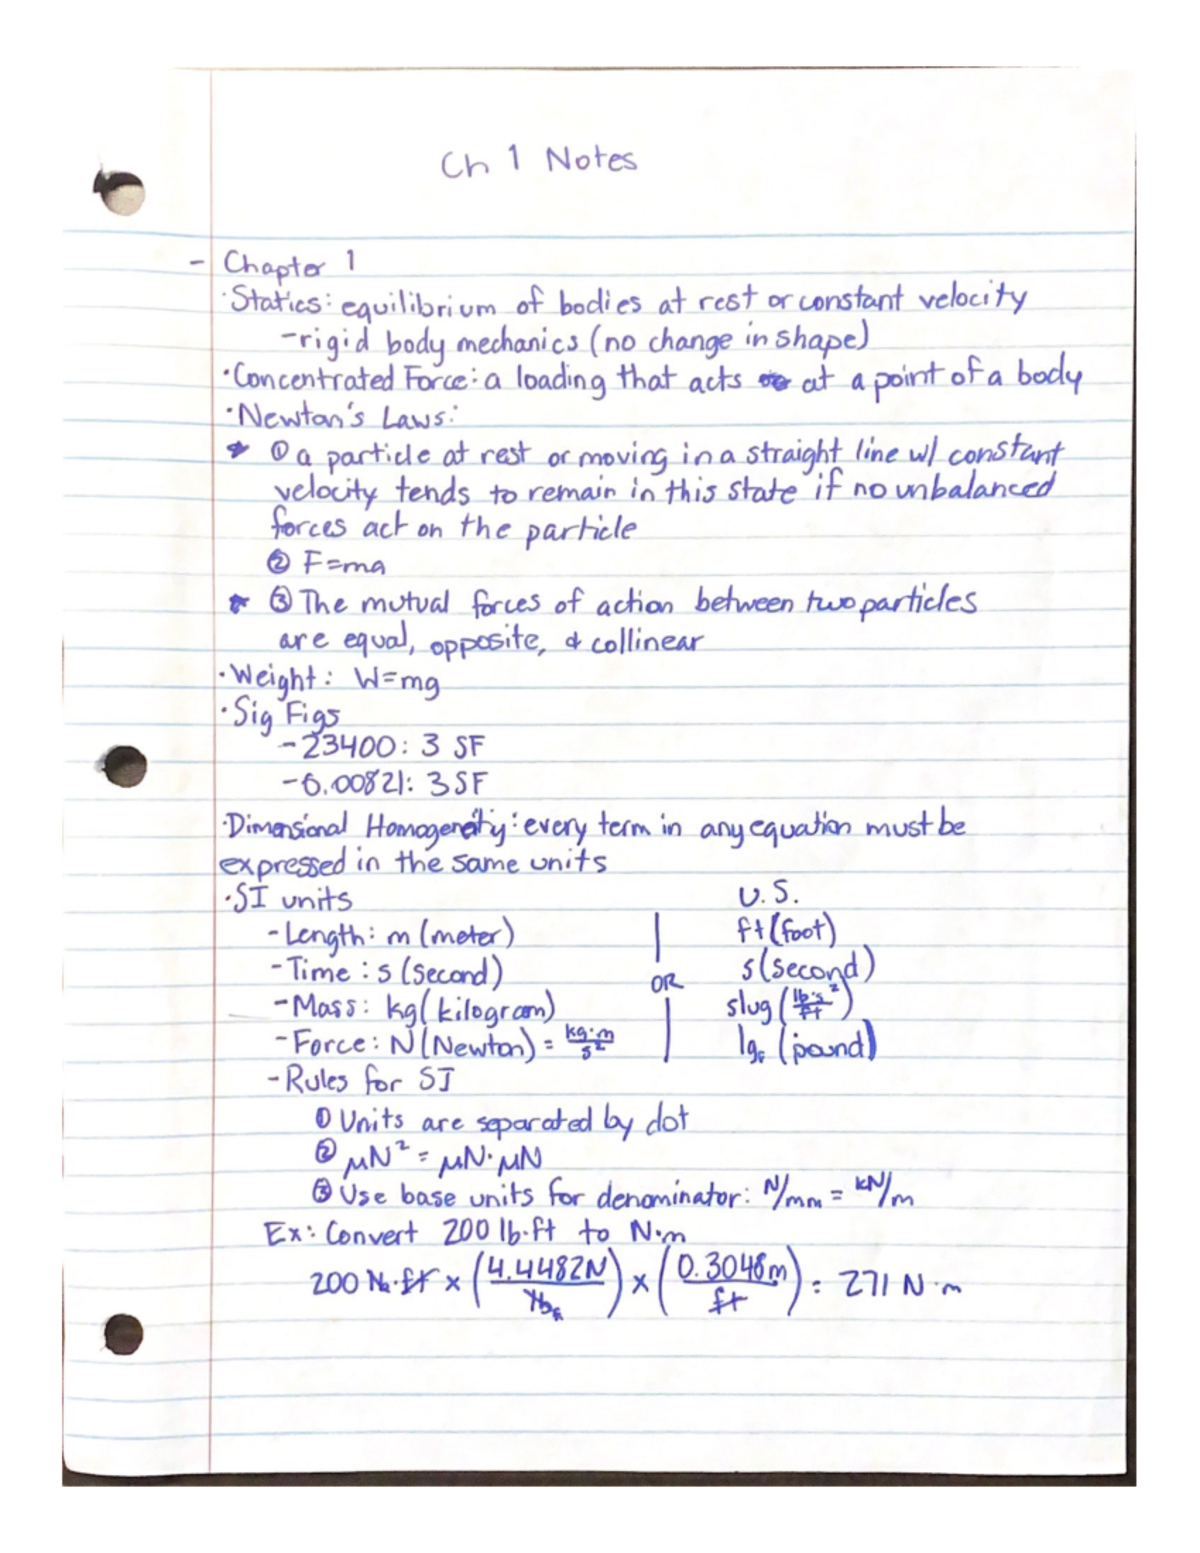 Ch 1 Notes
- Chapter 1
·Statics: equilibrium of bodies at rest or constant velocity
-rigid body mechanics (no change in shape)
·Concentrated Force: a loading that acts at a point of a body
·Newton's Laws:
* ① a particle at rest or moving in a straight line w/ constant
velocity tends to remain in this state if no unbalanced
forces act on the particle
② F=ma
* ③ The mutual forces of action between two particles
are equal, opposite, & collinear
·Weight: W=mg
·Sig Figs
-23400: 3 SF
-0.00821: 3 SF
·Dimensional Homogeneity: every term in any equation must be
expressed in the same units
·SI units U.S.
-Length: m (meter) | ft (foot)
-Time: s (second) OR s (second)
-Mass: kg (kilogram) | slug (lb·s²/ft)
-Force: N (Newton) = kg·m/s² | lgf (pound)
-Rules for SI
① Units are separated by dot
② μN² = μN·μN
③ Use base units for denominator: N/mm = kN/m
Ex: Convert 200 lb·ft to N·m
200 lb·ft x (4.4482N/lbf) x (0.3048m/ft) = 271 N·m